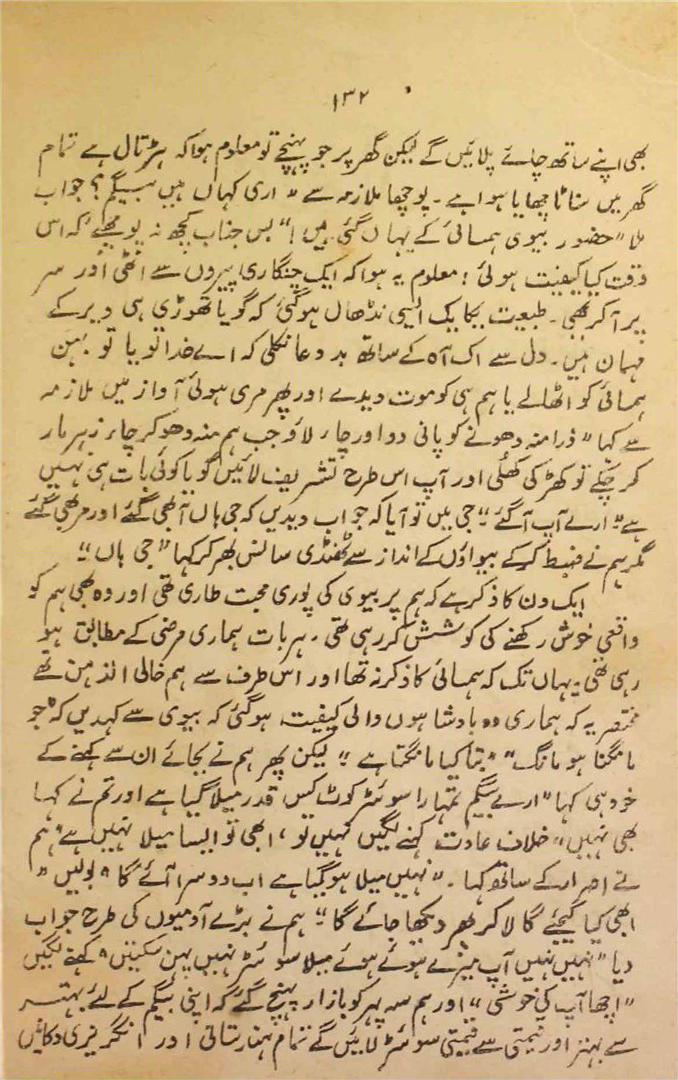 ۱۳۲
بھی اپنے ساتھ چائے پلائیں گے لیکن گھر پر جو پہنچے تو معلوم ہوا کہ ہڑتال ہے تمام
گھر میں سناٹا چھایا ہوا ہے۔ پوچھا ملازمہ سے "اری کہاں ہیں بیگم؟ جواب
ملا "حضور بیوی ہمسائی کے یہاں گئی ہیں!" بس جناب کچھ نہ پوچھئے کہ اس
وقت کیا کیفیت ہوئی؛ معلوم یہ ہوا کہ ایک چنگاری پیروں سے اٹھی اور سر
پر آکر بجھی۔ طبیعت یکایک ایسی نڈھال ہوگئی کہ گویا تھوڑی ہی دیر کے
مہمان ہیں۔ دل سے اک آہ کے ساتھ بد دعا نکلی کہ اے خدا تو یا تو بہن
ہمسائی کو اٹھالے یا ہم ہی کو موت دیدے اور پھر مری ہوئی آواز میں ملازمہ
سے کہا "ذرا منہ دھونے کو پانی دو اور چاء لاؤ جب ہم منہ دھو کر چاء زہر مار
کر چکے تو کھڑکی کھلی اور آپ اس طرح تشریف لائیں گویا کوئی بات ہی نہیں
ہے "ارے آپ آگئے" جی میں تو آیا کہ جواب دیدیں کہ جی ہاں آبھی گئے اور مر بھی گئے
مگر ہم نے ضبط کرکے بیواؤں کے انداز سے ٹھنڈی سانس بھر کر کہا "جی ہاں"
ایک دن کا ذکر ہے کہ ہم پر بیوی کی پوری محبت طاری تھی اور وہ بھی ہم کو
واقعی خوش رکھنے کی کوشش کررہی تھی، ہر بات ہماری مرضی کے مطابق ہو
رہی تھی۔ یہاں تک کہ ہمسائی کا ذکر نہ تھا اور اس طرف سے ہم خالی الذہن تھے
مختصر یہ کہ ہماری وہ بادشاہوں والی کیفیت ہوگئی کہ بیوی سے کہدیں کہ "جو
مانگنا ہو مانگ" "بتا کیا مانگتا ہے" لیکن پھر ہم نے بجائے ان سے کہنے کے
خود ہی کہا "ارے بیگم تمہارا سوئٹر کوٹ کس قدر میلا گیا ہے اور تم نے کہا
بھی نہیں" خلاف عادت کہنے لگیں نہیں تو، ابھی تو ایسا میلا نہیں ہے" ہم
نے اصرار کے ساتھ کہا۔ "نہیں میلا ہوگیا ہے اب دوسرا آئے گا" بولیں "
ابھی کیا کیجئے گا لاکر پھر دیکھا جائے گا" ہم نے بڑے آدمیوں کی طرح جواب
دیا "نہیں نہیں آپ میرے ہوتے ہوئے میلا سوئٹر نہیں پہن سکتیں" کہنے لگیں
"اچھا آپ کی خوشی" اور ہم سہ پہر کو بازار پہنچ گئے کہ اپنی بیگم کے لئے بہتر
سے بہتر اور قیمتی سے قیمتی سوئٹر لائیں گے تمام ہندوستانی اور انگریزی دکانیں